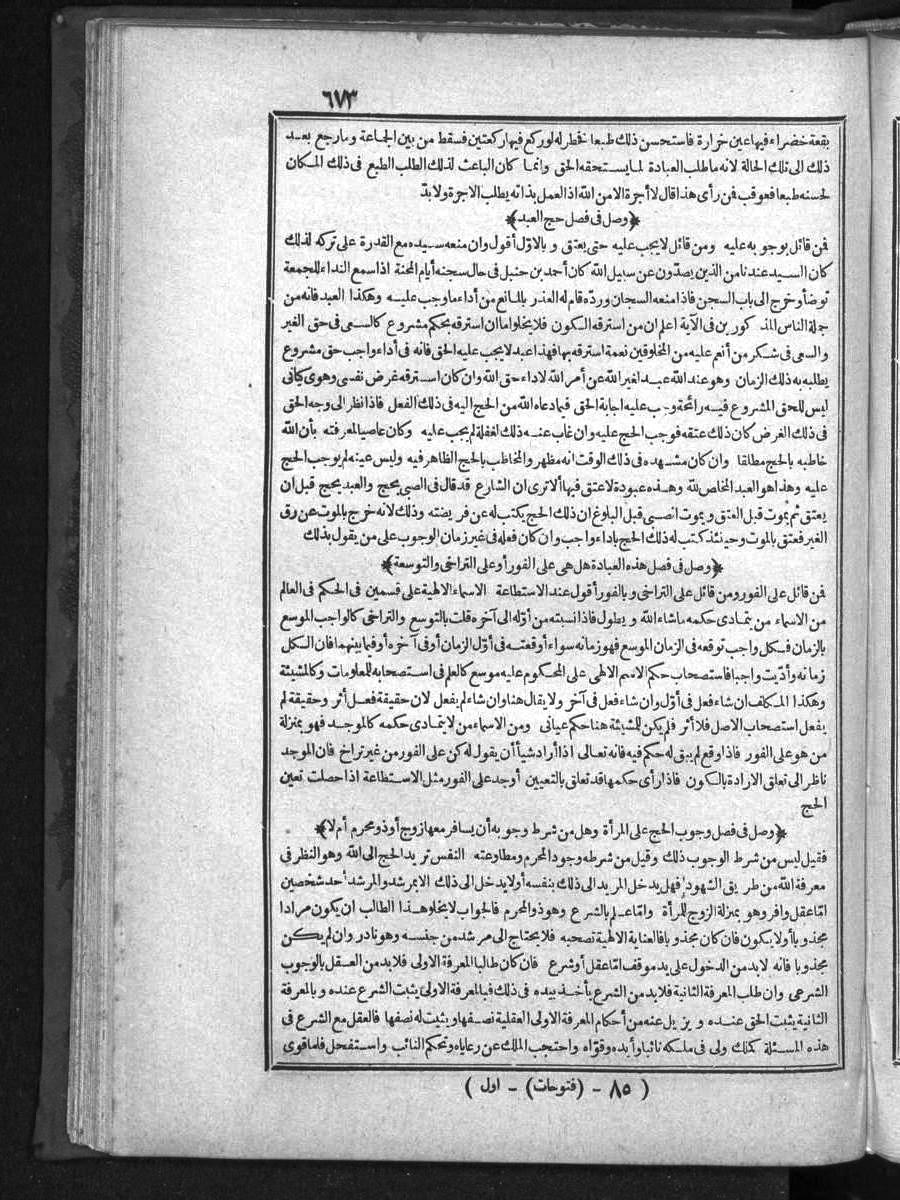 ٦٧٣
بقعة خضراء فيها عين خرارة فاستحسن ذلك طبعا فخطر له لو ركع فيها ركعتين فسقط من بين الجماعة وما رجع بعد
ذلك الى تلك الحالة لانه ما طلب العبادة لما يستحقه الحق وانما كان الباعث لذلك الطلب الطبع فى ذلك المكان
لحسنه طبعا فعوقب فن رأى هذا قال لا أجرة الا من الله اذ العمل بذاته يطلب الاجرة ولا بدّ
﴿وصل فى فصل حج العبد﴾
فن قائل بوجوبه عليه ومن قائل لا يجب عليه حتى يعتق وبالاوّل أقول وان منعه سيده مع القدرة على تركه لذلك
كان السيد عندنا من الذين يصدّون عن سبيل الله كان أحمد بن حنبل فى حال سجنه أيام المحنة اذا سمع النداء للجمعة
توضأ وخرج الى باب السجن فاذا منعه السجان وردّه قام له العذر بالمانع من أداء ما وجب عليه وهكذا العبد فانه من
جملة الناس المذكورين فى الآية اعلم ان من استرقه السكون فلا يخلو اما ان استرقه بحكم مشروع كالسعى فى حق الغير
والسعى فى شكر من أنعم عليه من المخلوقين نعمة استرقه بها فهذا عبد لا يجب عليه الحق فانه فى أداء واجب حق مشروع
يطلبه به ذلك الزمان وهو عند الله عبد لغير الله عن أمر الله لاداء حق الله وان كان استرقه غرض نفسى وهوى كيانى
ليس للحق المشروع فيه رائحة وجب عليه اجابة الحق فيما دعاه الله من الحج اليه فى ذلك الفعل فاذا نظر الى وجه الحق
فى ذلك الغرض كان ذلك عتقه فوجب الحج عليه وان غاب عنه ذلك لغفلة لم يجب عليه وكان عاصيا لمعرفته بأن الله
خاطبه بالحج مطلقا وان كان مشهده فى ذلك الوقت انه مظهر والمخاطب بالحج الظاهر فيه وليس عينه لم يوجب الحج
عليه وهذا هو العبد المخلص لله وهذه عبودة لا عتق فيها ألا ترى ان الشارع قد قال فى الصبى يحج والعبد يحج قبل ان
يعتق ثم يموت قبل العتق ويموت الصبى قبل البلوغ ان ذلك الحج يكتب له عن فريضته وذلك لانه خرج بالموت عن رق
الغير فعتق بالموت وحينئذ كتب له ذلك الحج باداء واجب وان كان فعله فى غير زمان الوجوب على من يقول بذلك
﴿وصل فى فصل هذه العبادة هل هى على الفور أو على التراخى والتوسعة﴾
فن قائل على الفور ومن قائل على التراخى وبالفور أقول عند الاستطاعة الاسماء الالهية على قسمين فى الحكم فى العالم
من الاسماء من يتمادى حكمه ما شاء الله ويطول فاذا نسبته من أوّله الى آخره قلت بالتوسع والتراخى كالواجب الموسع
بالزمان فكل واجب توقعه فى الزمان الموسع فهو زمانه سواء أوقعته فى أوّل الزمان أو فى آخره أو فيما بينهما فان الكل
زمانه وأدّيت واجبا فاستصحاب حكم الاسم الالهى على المحكوم عليه موسع كالعلم فى استصحابه للمعلومات وكالمشيئة
وهكذا المكلف ان شاء فعل فى أوّل وان شاء فعل فى آخر ولا يقال هنا وان شاء لم يفعل لان حقيقة فعل أثر وحقيقة لم
يفعل استصحاب الاصل فلا أثر فلم يكن للمشيئة هنا حكم عيانى ومن الاسماء من لا يتمادى حكمه كالموجد فهو بمنزلة
من هو على الفور فاذا وقع لم يبق له حكم فيه فانه تعالى اذا أراد شيأ أن يقول له كن على الفور من غير تراخ فان الموجد
ناظر الى تعلق الارادة بالكون فاذا رأى حكمها قد تعلق بالتعيين أوجد على الفور مثل الاستطاعة اذا حصلت تعين
الحج
﴿وصل فى فصل وجوب الحج على المرأة وهل من شرط وجوبه أن يسافر معها زوج أو ذو محرم أم لا﴾
فقيل ليس من شرط الوجوب ذلك وقيل من شرطه وجود المحرم ومطاوعته النفس تريد الحج الى الله وهو النظر فى
معرفة الله من طريق الشهود فهل يدخل المريد الى ذلك بنفسه أو لا يدخل الى ذلك الا بمرشد والمرشد أحد شخصين
امّا عقل وافر وهو بمنزلة الزوج للمرأة وامّا علم بالشرع وهو ذو المحرم فالجواب لا يخلو هذا الطالب ان يكون مرادا
مجذوبا أو لا يكون فان كان مجذوبا فالعناية الالهية تصحبه فلا يحتاج الى مرشد من جنسه وهو نادر وان لم يكن
مجذوبا فانه لا بد من الدخول على يد موقف امّا عقل أو شرع فان كان طالبا المعرفة الاولى فلا بد من العقل بالوجوب
الشرعى وان طلب المعرفة الثانية فلا بد من الشرع يأخذ بيده فى ذلك فبالمعرفة الاولى يثبت الشرع عنده وبالمعرفة
الثانية يثبت الحق عنده ويزيل عنه من أحكام المعرفة الاولى العقلية نصفها ويثبت له نصفها فالعقل مع الشرع فى
هذه المسئلة كملك ولى فى ملكه نائبا وأيده وقوّاه واحتجب الملك عن رعاياه وتحكم النائب واستفحل فلما قوى
( ٨٥ - (فتوحات) - اول )